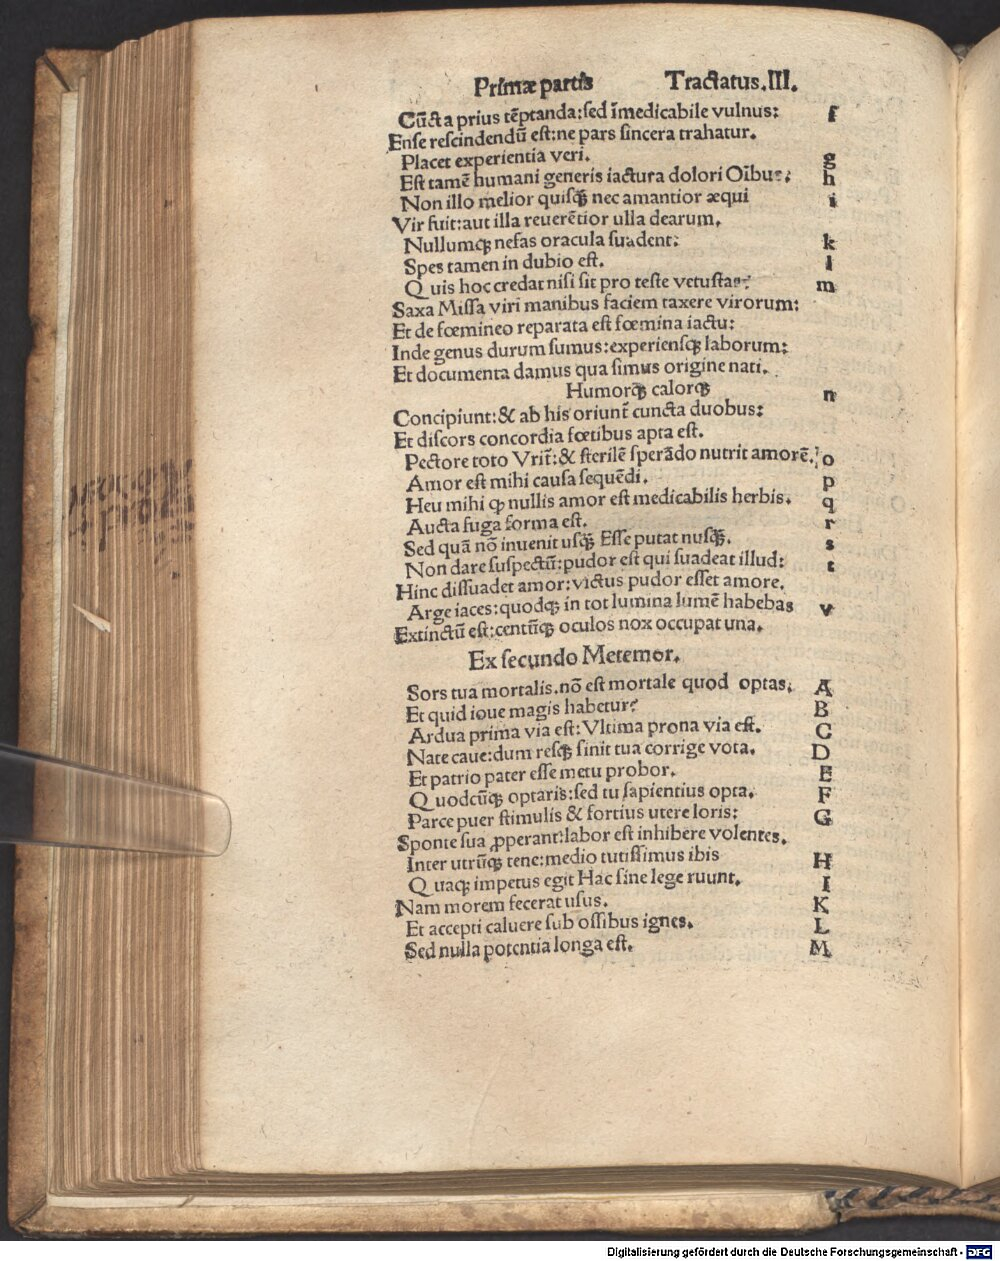 Primæ partis Tractatus.III.
Cūcta prius tēptanda:sed īmedicabile vulnus: f
Ense rescindendū est:ne pars sincera trahatur.
Placet experientia veri. g
Est tamē humani generis iactura dolori Oībus. h
Non illo melior quisq̄ nec amantior æqui i
Vir fuit:aut illa reuerētior ulla dearum.
Nullumqꝫ nefas oracula suadent: k
Spes tamen in dubio est. l
Quis hoc credat nisi sit pro teste vetustas? m
Saxa Missa viri manibus faciem taxere virorum:
Et de fœmineo reparata est fœmina iactu:
Inde genus durum sumus:experiensqꝫ laborum:
Et documenta damus qua simus origine nati.
Humorqꝫ calorqꝫ n
Concipiunt:& ab his oriunt̄ cuncta duobus:
Et discors concordia fœtibus apta est.
Pectore toto Vrit̄:& sterilē sperādo nutrit amorē. o
Amor est mihi causa sequēdi. p
Heu mihi ꝙ nullis amor est medicabilis herbis. q
Aucta fuga forma est. r
Sed quā nō inuenit usq̄ Esse putat nusq̄. s
Non dare suspectū:pudor est qui suadeat illud: t
Hinc dissuadet amor:victus pudor esset amore.
Arge iaces:quodqꝫ in tot lumina lumē habebas v
Extinctū est:centūqꝫ oculos nox occupat una.
Ex secundo Metemor.
Sors tua mortalis.nō est mortale quod optas. A
Et quid ioue magis habetur? B
Ardua prima via est:Vltima prona via est. C
Nate caue:dum resqꝫ sinit tua corrige vota. D
Et patrio pater esse metu probor. E
Quodcūqꝫ optaris:sed tu sapientius opta. F
Parce puer stimulis & fortius utere loris: G
Sponte sua ꝓperant:labor est inhibere volentes.
Inter utrūqꝫ tene:medio tutissimus ibis H
Quaqꝫ impetus egit Hac sine lege ruunt. I
Nam morem fecerat usus. K
Et accepti caluere sub ossibus ignes. L
Sed nulla potentia longa est. M
Digitalisierung gefördert durch die Deutsche Forschungsgemeinschaft - DFG